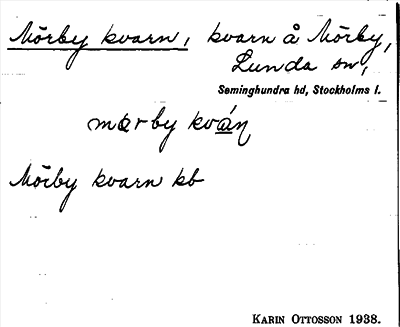 Mörby kvarn, kvarn å Mörby,
Lunda sn,
Seminghundra hd, Stockholms l.
mərby kván
Mörby kvarn kb
KARIN OTTOSSON 1938.